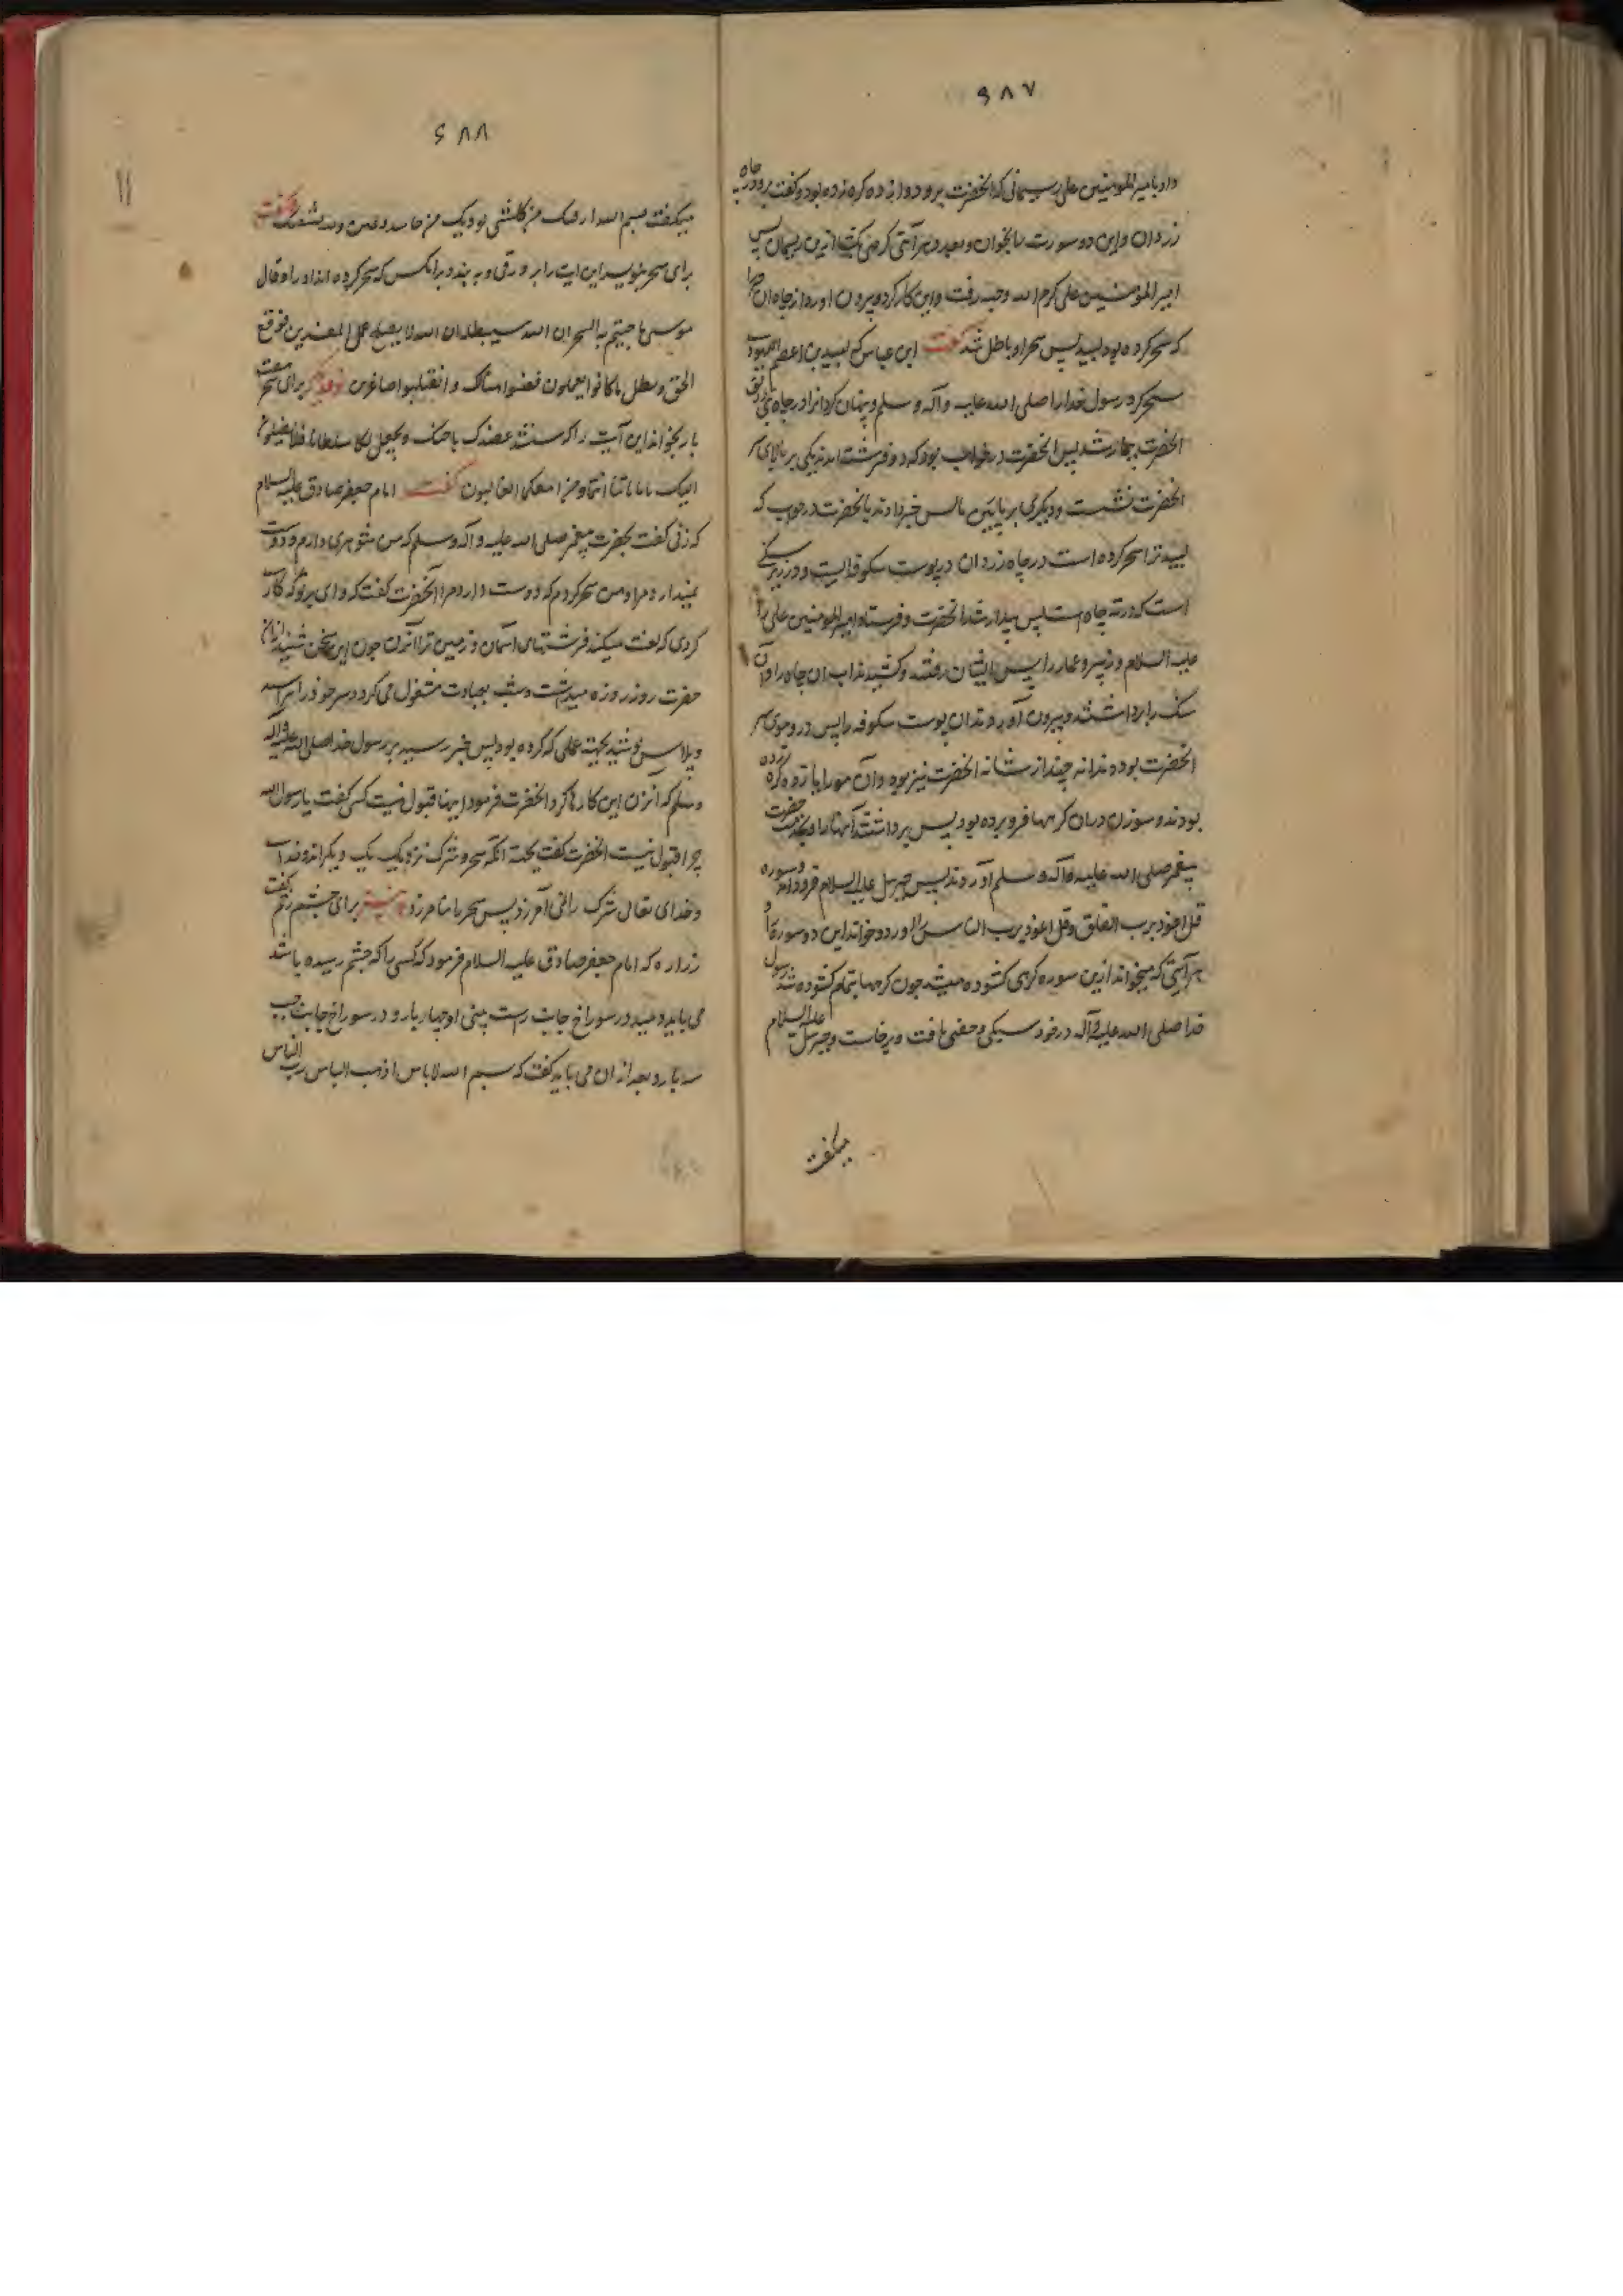 ۶۸۷
داد بامیر المومنین علی ریسمانی که انحضرت برو دوازده کره زده بود و کفت برو در چاه
زردان و این دو سورت را بخوان و بعدد هر آیتی کرهی بکشا ازین ریسمان پس
امیر المؤمنین علی کرم الله وجهه رفت و این کار کرد و بیرون اورد از چاه ان
که سحر کرده بود لبید پس سحر او باطل شد کفت ابن عباس که لبید بن اعصم یهودی
سحر کرد رسول خدا را صلی الله علیه و آله وسلم و پنهان کرد انرا در چاه بنی زریق
انحضرت بیمار شد پس انحضرت در خواب بود که دو فرشته امدند یکی بر بالای سر
انحضرت نشست و دیکری بر پایین پس خبر دادند بانحضرت در خواب که
لبید ترا سحر کرده است در چاه زردان در پوست شکوفه ایست و در زیر سنکی
است که در ته چاه است پس بیدار شد انحضرت و فرستاد امیر المومنین علی را
علیه السلام و زبیر و عمار را پس ایشان رفتند و کشیدند اب ان چاه را و آن
سنک را برداشتند و بیرون آوردند ان پوست شکوفه را پس در و موی سر
انحضرت بود و دندانه چند از شانه انحضرت نیز بود و آن مو را یازده کره زده
بودند و سوزن دران کرهها فرو برده بود پس برداشتند آنها را و بخدمت حضرت
پیغمبر صلی الله علیه و آله و سلم آوردند پس جبرییل علیه السلام فرود آمد و سوره
قل اعوذ برب الفلق و قل اعوذ برب الناس را اورد و خواند این دو سوره را و
بهر آیتی که میخواند ازین سوره کرهی کشوده میشد چون کرهها بتمام کشوده شد رسول
خدا صلی الله علیه و آله در خود سبکی و خفتی یافت و برخاست و جبرییل علیه السلام
میکفت
۶۸۸
میکفت بسم الله ارقیک من کل شیء یوذیک من حاسد و عین والله یشفیک کفت
برای سحر بنویسد این ایت را بر ورقی و به بندد بر انکس که سحر کرده اند او را و قال
موسی ما جئتم به السحر ان الله سیبطله ان الله لا یصلح عمل المفسدین فوقع
الحق و بطل ما کانوا یعملون فغلبوا هنالک و انقلبوا صاغرین نوع دیکر برای سحر هفت
بار بخواند این آیت را که سنشد عضدک باخیک و نجعل لکما سلطانا فلا یصلون
الیکما بآیاتنا انتما و من اتبعکما الغالبون کفت امام جعفر صادق علیه السلام
که زنی کفت بحضرت پیغمبر صلی الله علیه و آله و سلم که من شوهری دارم و دوست
نمیدارد مرا و من سحر کردم که دوست دارد مرا آنحضرت کفت که وای بر تو که کاری
کردی که لعنت میکند فرشتهای آسمان و زمین ترا آنزن چون این سخن شنید ازان
حضرت روز روزه میداشت و شب بعبادت مشغول می کرد و سر خود را تراشید
و پلاس پوشید بجهة عملی که کرده بود پس خبر رسید بر رسول خدا صلی الله علیه و آله
و سلم که آنزن این کارها کرد انحضرت فرمود اینها قبول نیست کسی کفت یا رسول الله
چرا قبول نیست انحضرت کفت بجهة آنکه سحر و شرک نزدیک یک دیکراند
و خدای تعالی شرک را نمی آمرزد پس سحر را نیامرزد برای چشم زخم کفت
زراره که امام جعفر صادق علیه السلام فرمود که کسی را که چشم رسیده باشد
می باید دمید در سوراخ جانب راست بینی او چهار بار و در سوراخ جانب چپ
سه بار و بعد از ان می باید کفت که بسم الله لا باس اذهب الباس رب الناس